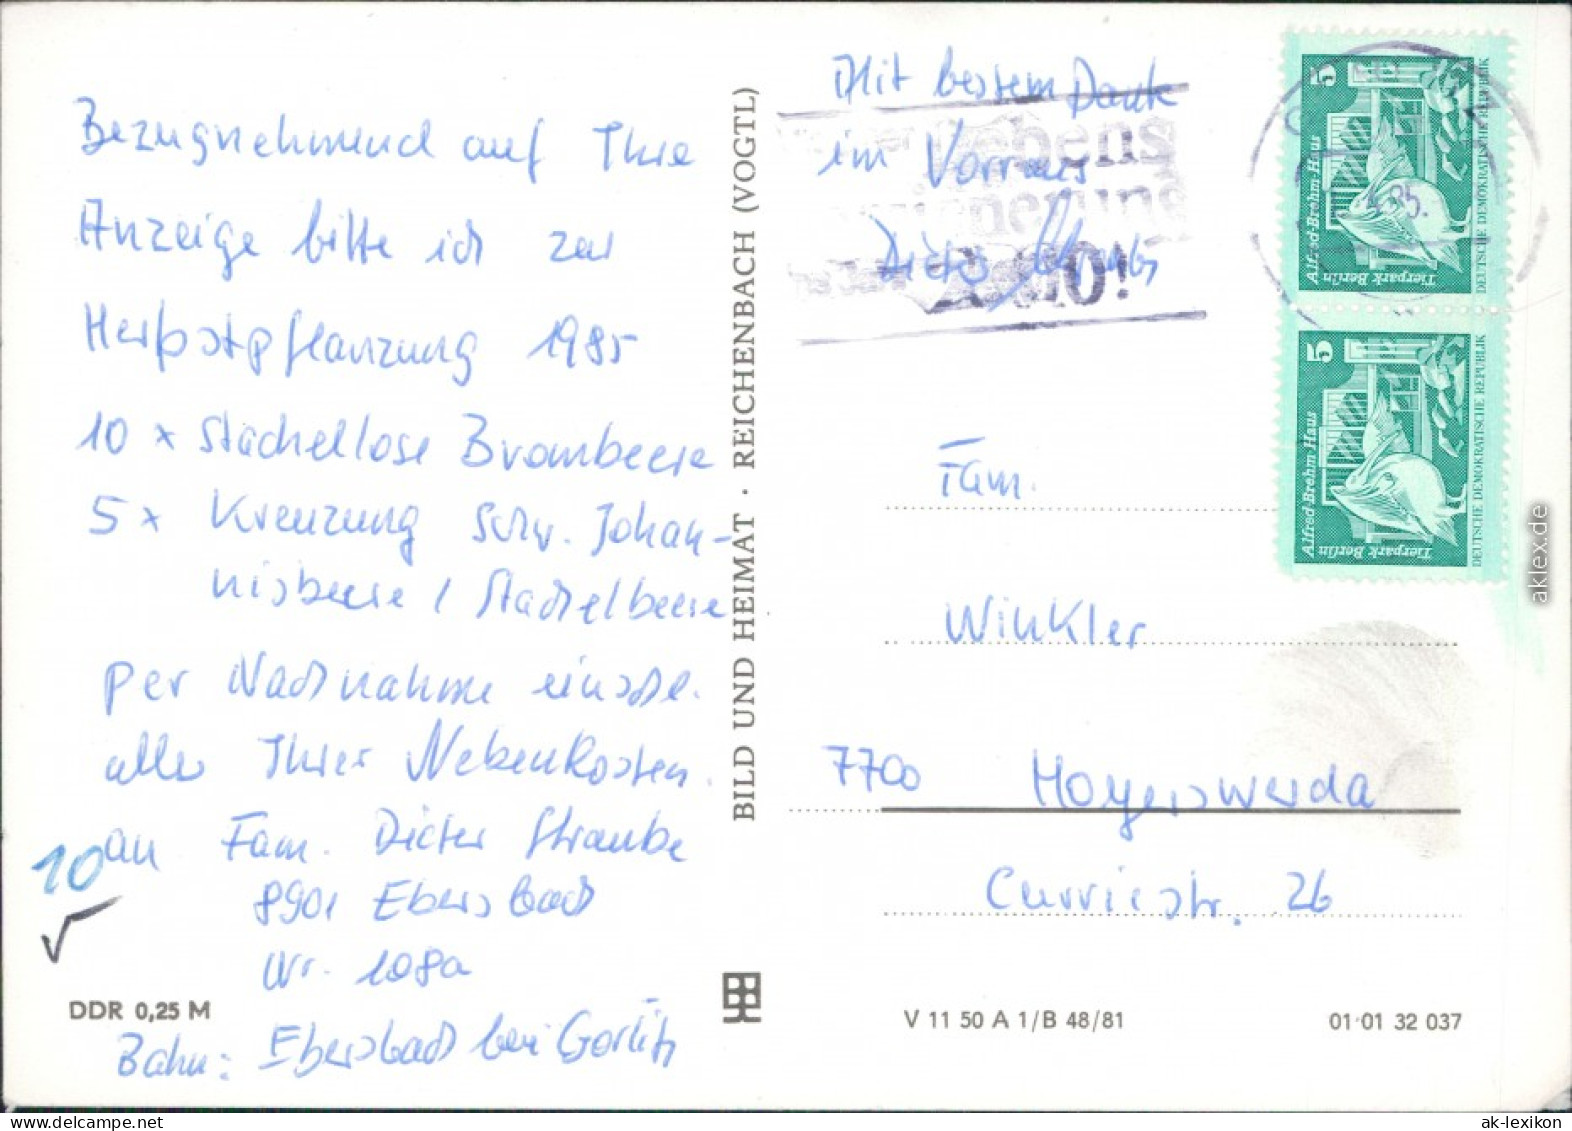 Bezugnehmend auf Ihre
Anzeige bitte ich zur
Herbstpflanzung 1985
10 x stachellose Brombeere
5 x Kreuzung Schw. Johan-
nisbeere / Stachelbeere
per Nachnahme einschl.
aller Ihrer Nebenkosten.
an Fam. Dieter Straube
8901 Ebersbach
Nr. 108a
Bahn: Ebersbach bei Görlitz
10
DDR 0,25 M
BILD UND HEIMAT · REICHENBACH (VOGTL)
Mit bestem Dank
im Vorraus
Dieter Straube
Lebens
AMO!
85
5
Alfred-Brehm-Haus
Tierpark Berlin
DEUTSCHE DEMOKRATISCHE REPUBLIK
5
Alfred-Brehm-Haus
Tierpark Berlin
DEUTSCHE DEMOKRATISCHE REPUBLIK
Fam.
Winkler
7700 Hoyerswerda
Curriestr. 26
V 11 50 A 1/B 48/81
01 01 32 037
aklex.de
ak-lexikon